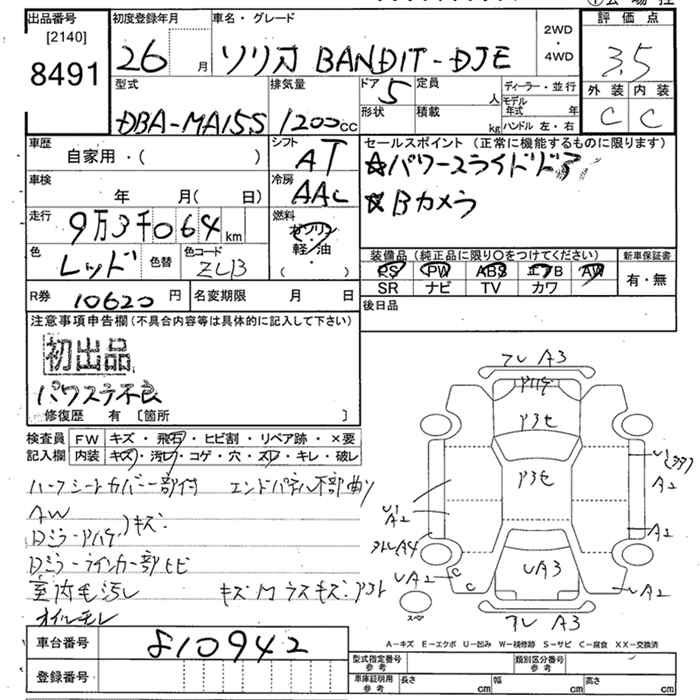 出品番号 初度登録年月 車名・グレード 評価点
[2140]
8491 26 月 ソリオ BANDIT-DJE 2WD・4WD 3.5
型式 排気量 ドア 5 定員 人 ディーラー・並行 外装 内装
DBA-MA15S 1200cc 形状 積載 kg モデル年式 年 C C
ハンドル 左・右
車歴 自家用・( ) シフト AT セールスポイント (正常に機能するものに限ります)
☆パワースライドドア
車検 年 月( 日) 冷房 AAC ☆Bカメラ
走行 9万3千064km 燃料 ガソリン・軽油 ( )
色 レッド 色替 色コード ZLB 装備品 (純正品に限り〇をつけてください) 新車保証書
PS PW ABS エアB AW 有・無
SR ナビ TV カワ
R券 10620円 名変期限 月 日 後日品
注意事項申告欄(不具合内容等は具体的に記入して下さい)
初出品
パワステ不良
修復歴 有 〔箇所 〕
検査員記入欄 FW キズ・飛石・ヒビ割・リペア跡・×要
内装 キズ・汚レ・コゲ・穴・スレ・キレ・破レ
ハーフシートカバー部付 エンドパネル下部曲り
AW
キズ
室内毛汚レ
オイルモレ
フレ A3
P3セ
P3セ
U1
A2
U1
A2
A2
UA2
C
C
UA3
UA2
スペア
フレ A3
A-キズ E-エクボ U-凹み W-補修跡 S-サビ C-腐食 XX-交換済
車台番号 810942 型式指定番号 参考 類別区分番号 参考
登録番号 車庫証明用 参考 長さ cm 幅 cm 高さ cm